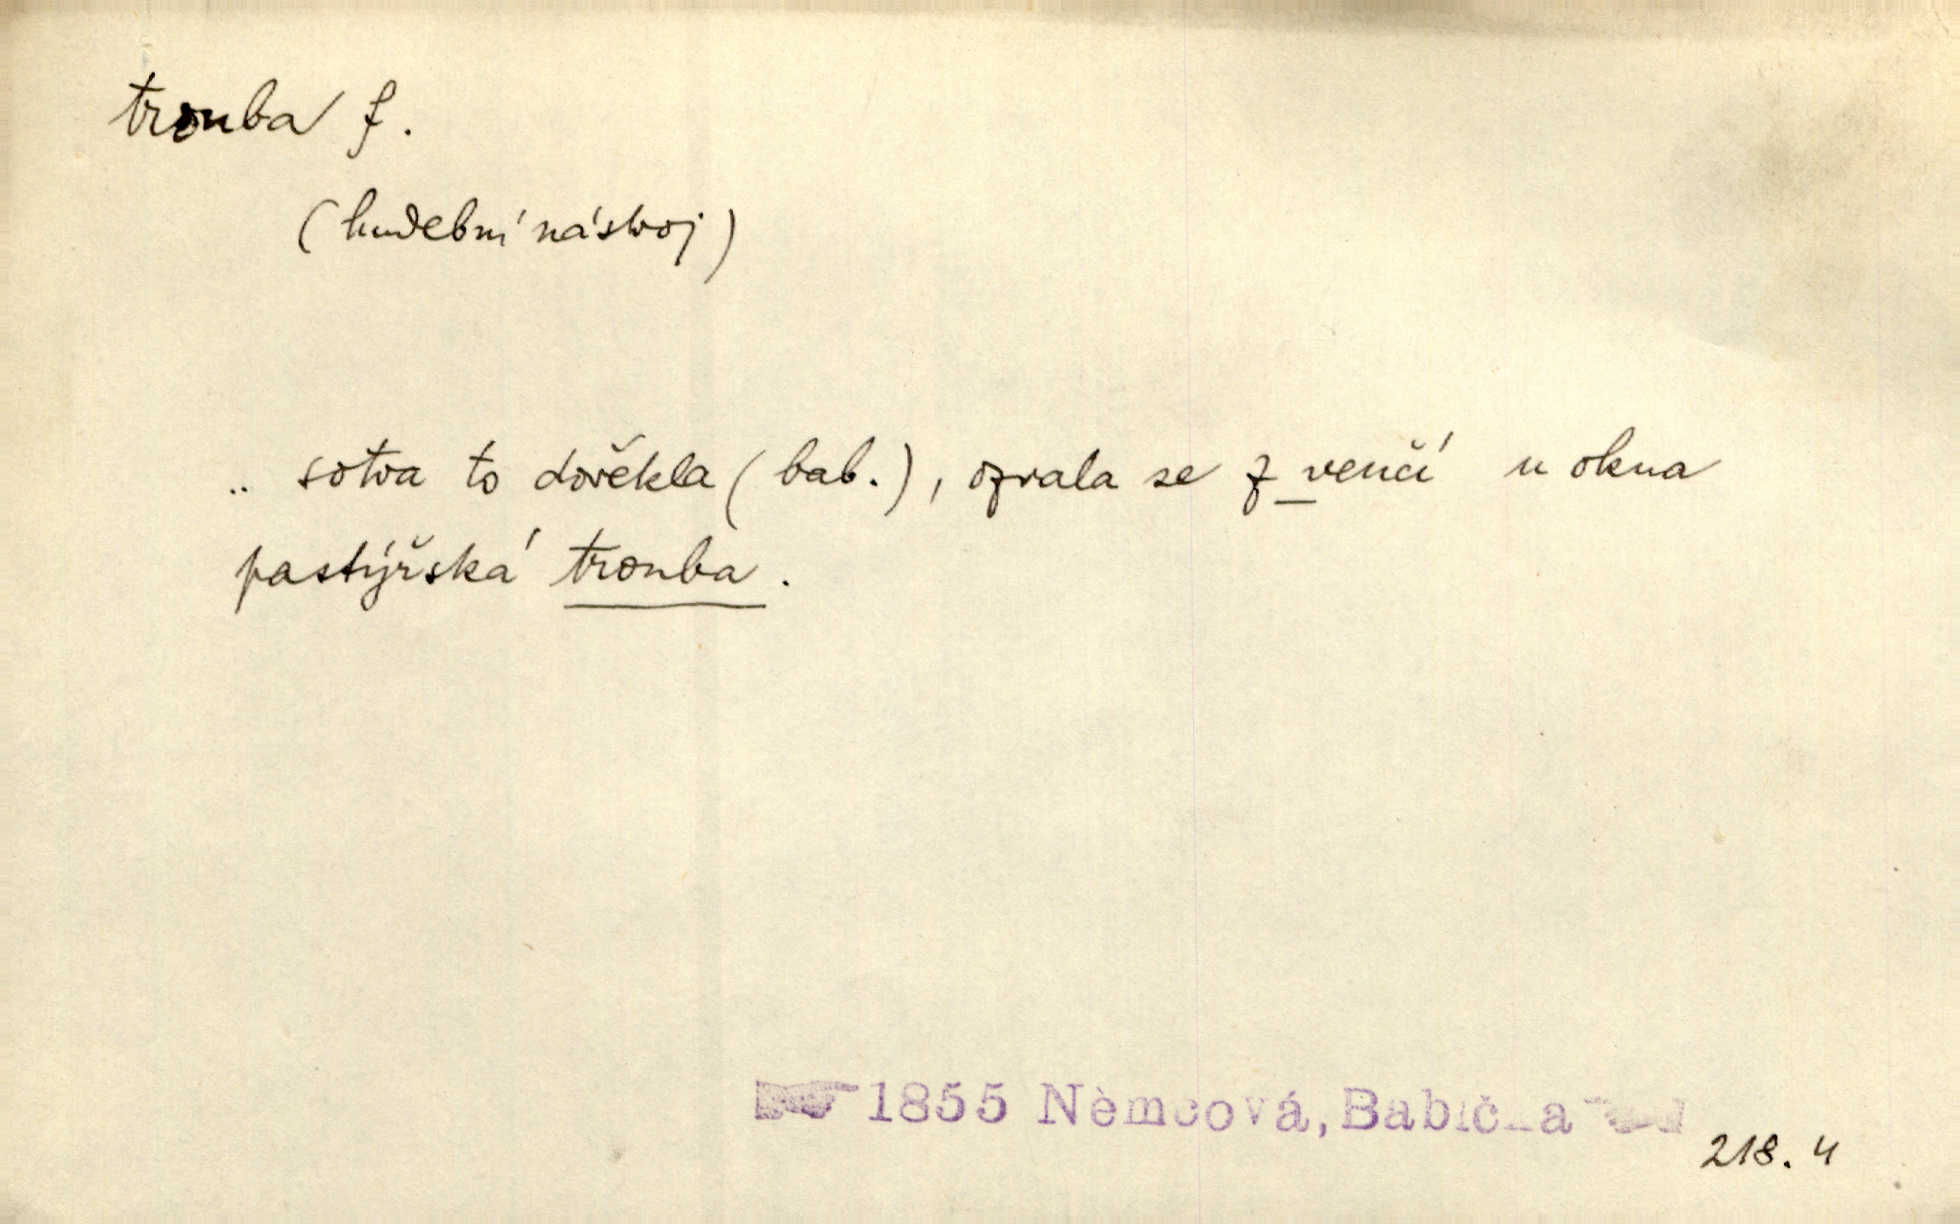 trouba f.
(hudební nástroj)
.. sotva to dořekla (bab.), ozvala se z venčí u okna
pastýřská trouba.
1855 Němcová, Babička
218. 4